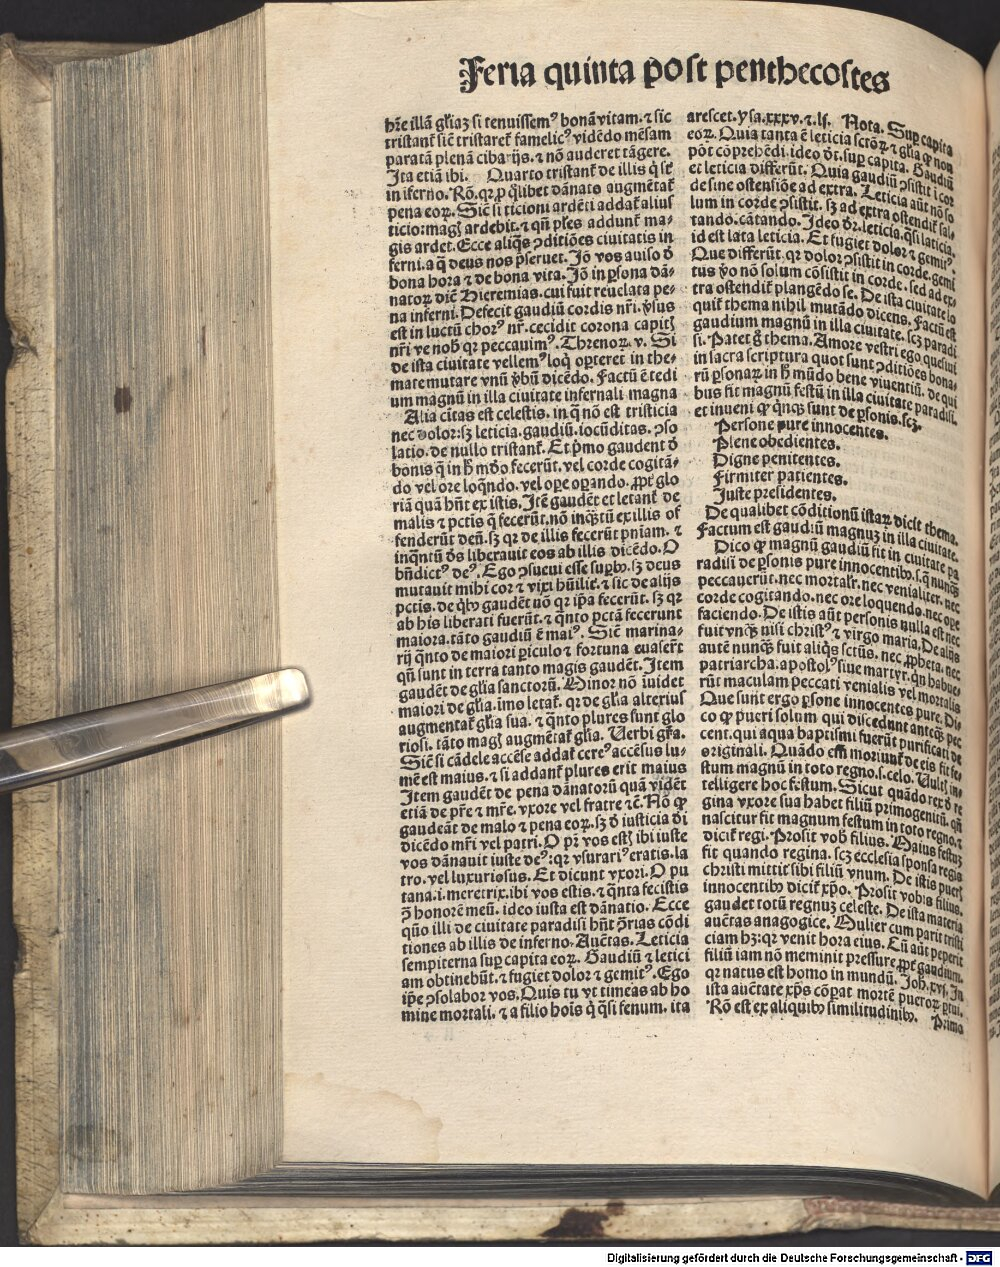 Feria quinta post penthecostes
hr̄e illā gl̄iaꝫ si tenuissemꝰ bonā vitam. ⁊ sic
tristant᷑ sic̄ tristaret᷑ famelicꝰ vidēdo mēsam
paratā plenā cibarijs. ⁊ nō auderet tāgere.
Ita etiā ibi. Quarto tristant᷑ de illis q̄ sūt
in iferno. Rō. qꝛ ꝓ q̄libet dānato augmētat᷑
pena eoꝝ. Sic̄ si ticioni ardēti addat᷑ alius
ticio: magꝭ ardebit. ⁊ qn̄ pl̄es addunt᷑ ma-
gis ardet. Ecce aliq̄s ꝯditiōes ciuitatis in
ferni. a q̄ deus nos p̄seruet. Iō vos auiso d̄
bona hora ⁊ de bona vita. Iō in ꝑsona dā-
natoꝝ dic̄ Hieremias. cui fuit reuelata pe-
na inferni. Defecit gaudiū cordis nr̄i. v̓sus
est in luctū chorꝰ nr̄. cecidit corona capitꝭ
nr̄i ve nob̓ qꝛ peccauimꝰ. Threnoꝝ. v. Si
de ista ciuitate vellemꝰ loq̄ oporteret in the-
mate mutare vnū v̓bū dicēdo. Factū ē tedi
um magnū in illa ciuitate infernali magna
Alia citas est celestis. in q̄ nō est tristicia
nec dolor: sꝫ leticia. gaudiū. iocūditas. ꝯso
latio. de nullo tristant᷑. Et p̄mo gaudent d̄
bonis q̄ in h̄ mūdo fecerūt. vel corde cogitā-
do vel ore loq̄ndo. vel oꝑe oꝑando. ꝓpt᷑ glo
riā quā hn̄t ex istis. Itē gaudēt et letant᷑ de
malis ⁊ pctis q̄ fecerūt. nō inq̄stū ex illis of
fenderūt deū. sꝫ qꝛ de illis fecerūt pn̄iam. ⁊
inqntū d̄s liberauit eos ab illis dicēdo. O
bn̄dictꝰ deꝰ. Ego ꝯsueui esse suꝑbꝰ. sꝫ deus
mutauit mihi cor ⁊ vixi hūilit᷑. ⁊ sic de alijs
pctis. de qb̓ gaudēt nō qꝛ ip̄a fecerūt. sꝫ qꝛ
ab his liberati fuerūt. ⁊ q̄nto pctā fecerunt
maiora. tāto gaudiū ē maiꝰ. Sic̄ marina-
rij q̄nto de maiori ꝑiculo ⁊ fortuna euaserūt
qn̄ sunt in terra tanto magis gaudēt. Item
gaudēt de gl̄ia sanctorū. Minor nō iuidet
maiori de gl̄ia. imo letat᷑. qꝛ de gl̄ia alterius
augmentat᷑ gl̄ia sua. ⁊ q̄nto plures sunt glo
riosi. tāto magꝭ augmētat᷑ gl̄ia. Verbi gr̄a.
Sic̄ si cādele accēse addat᷑ cereꝰ accēsus lu-
mē est maius. ⁊ si addant᷑ plures erit maius
Item gaudēt de pena dānatorū quā vidēt
etiā de pr̄e ⁊ mr̄e. vxore vel fratre ⁊c̄. Nō ꝙ
gaudeāt de malo ⁊ pena eoꝝ. sꝫ d̄ iusticia di
dicēdo mr̄i vel patri. O pr̄ vos estꝭ ibi iuste
vos dānauit iuste deꝰ: qꝛ vsurariꝰ eratis. la
tro. vel luxuriosus. Et dicunt vxori. O pu
tana. i. meretrix. ibi vos estis. ⁊ q̄nta fecistis
ꝯ̄ honorē meū. ideo iusta est dānatio. Ecce
quō illi de ciuitate paradisi hn̄t ꝯ̄rias cōdi
tiones ab illis de inferno. Auctas. Leticia
sempiterna suꝑ capita eoꝝ. Gaudiū ⁊ letici
am obtinebūt. ⁊ fugiet dolor ⁊ gemitꝰ. Ego
ip̄e ꝯsolabor vos. Quis tu vt timeas ab ho
mine mortali. ⁊ a filio hoīs q̄ q̄si fenum. ita
arescet. ysa. xxxv. ⁊. lj. Nota. Suꝑ capita
eoꝝ. Quia tanta ē leticia sctōꝝ ⁊ gl̄ia ꝙ non
pōt cōprehēdi. ideo dr̄. suꝑ capita. Gaudiū
et leticia differūt. Quia gaudiū ꝯsistit ī cor
de sine ostensiōe ad extra. Leticia aūt nō so
lum in corde ꝯsistit. sꝫ ad extra ostendit᷑ sal-
tando. cātando. Ideo dr̄. leticia. q̄si laticia.
id est lata leticia. Et fugiet dolor ⁊ gemitꝰ.
Que differūt. qꝛ dolor ꝯsistit in corde. gemi
tus v̓o nō solum cōsistit in corde. sed ad ex-
tra ostendit᷑ plangēdo se. De ista ciuitate lo
quit᷑ thema nihil mutādo dicens. Factū est
gaudium magnū in illa ciuitate. scꝫ paradi
si. Patet g̊ thema. Amore vestri ego quesiui
in sacra scriptura quot sunt ꝯditiōes bona-
rū ꝑsonaꝝ in h̄ mūdo bene viuentiū. de qui
bus fit magnū festū in illa ciuitate paradisi.
et inueni ꝙ q̄nqꝫ sunt de ꝑsonis. scꝫ.
Persone pure innocentes.
Plene obedientes.
Digne penitentes.
Firmiter patientes.
Juste presidentes.
De qualibet cōditionū istaꝝ dicit thema.
Factum est gaudiū magnuꝫ in illa ciuitate.
Dico ꝙ magnū gaudiū fit in ciuitate pa
radisi de ꝑsonis pure innocentibꝰ. s. q̄ nunqꝫ
peccauerūt. nec mortalr̄. nec venialiter. nec
corde cogitando. nec ore loquendo. nec oꝑe
faciendo. De istis aūt personis nulla est nec
fuit vnqꝫ nisi christꝰ ⁊ virgo maria. De alijs
autē nunqꝫ fuit aliqs sctūs. nec ꝓpheta. nec
patriarcha. apostolꝰ siue martyr. qn habue
rūt maculam peccati venialis vel mortalis
Que sunt ergo ꝑsone innocentes pure. Di
co ꝙ pueri solum qui discedunt anteqꝫ pec
cent. qui aqua baptismi fuerūt purificati de
originali. Quādo em̄ moriunt᷑ de eis fit fe-
stum magnū in toto regno. s. celo. Vultꝭ in-
telligere hoc festum. Sicut quādo rex d̄ re
gina vxore sua habet filiū primogenitū. qn̄
nascitur fit magnum festum in toto regno. ⁊
dicit᷑ regi. Prosit vob̓ filius. Maius festuꝫ
fit quando regina. scꝫ ecclesia sponsa regis
christi mittit sibi filiū vnum. De istis puerꝭ
innocentibꝰ dicit᷑ xp̄o. Prosit vobis filius.
gaudet totū regnuꝫ celeste. De ista materia
auctas anagogice. Mulier cum parit tristi
ciam hꝫ: qꝛ venit hora eius. Cū aūt peperit
filiū iam nō meminit pressure ꝓpt᷑ gaudium.
qꝛ natus est homo in mundū. Joh̄. xvj. In
ista auctate xp̄s cōꝑat mortē pueroꝝ ꝑtui.
Rō est ex aliquibꝰ similitudinibꝰ. Prima
Digitalisierung gefördert durch die Deutsche Forschungsgemeinschaft - DFG